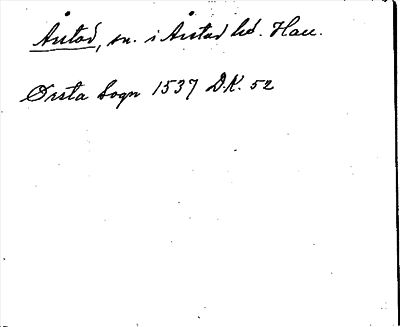 Årstad, sn. i Årstad hd. Hall.
Ørsta Sogn 1537 D.K. 52